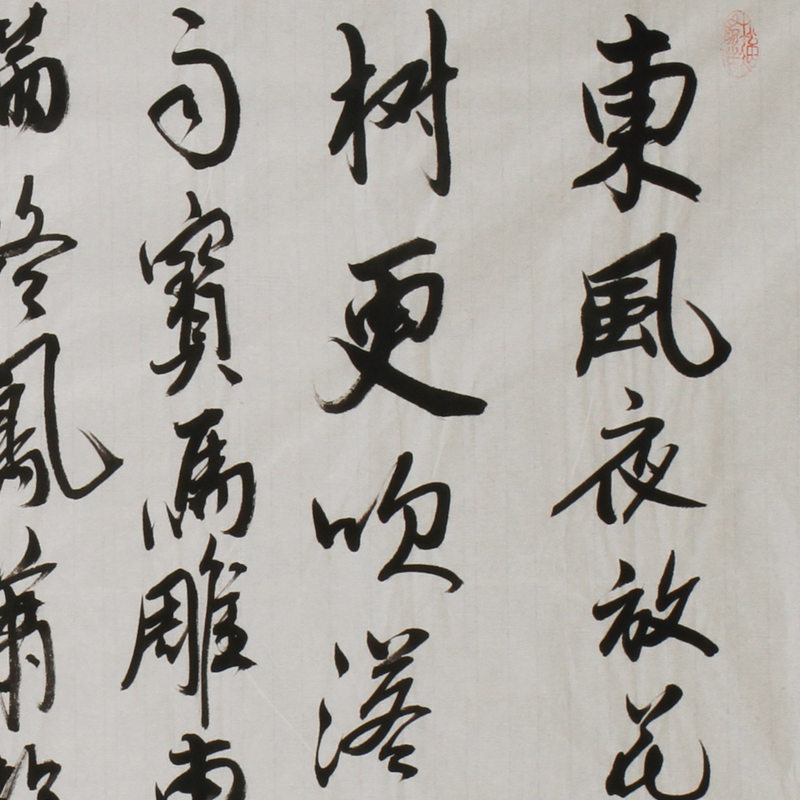 東風夜放花
树更吹落
雨寶馬雕
滿路鳳簫